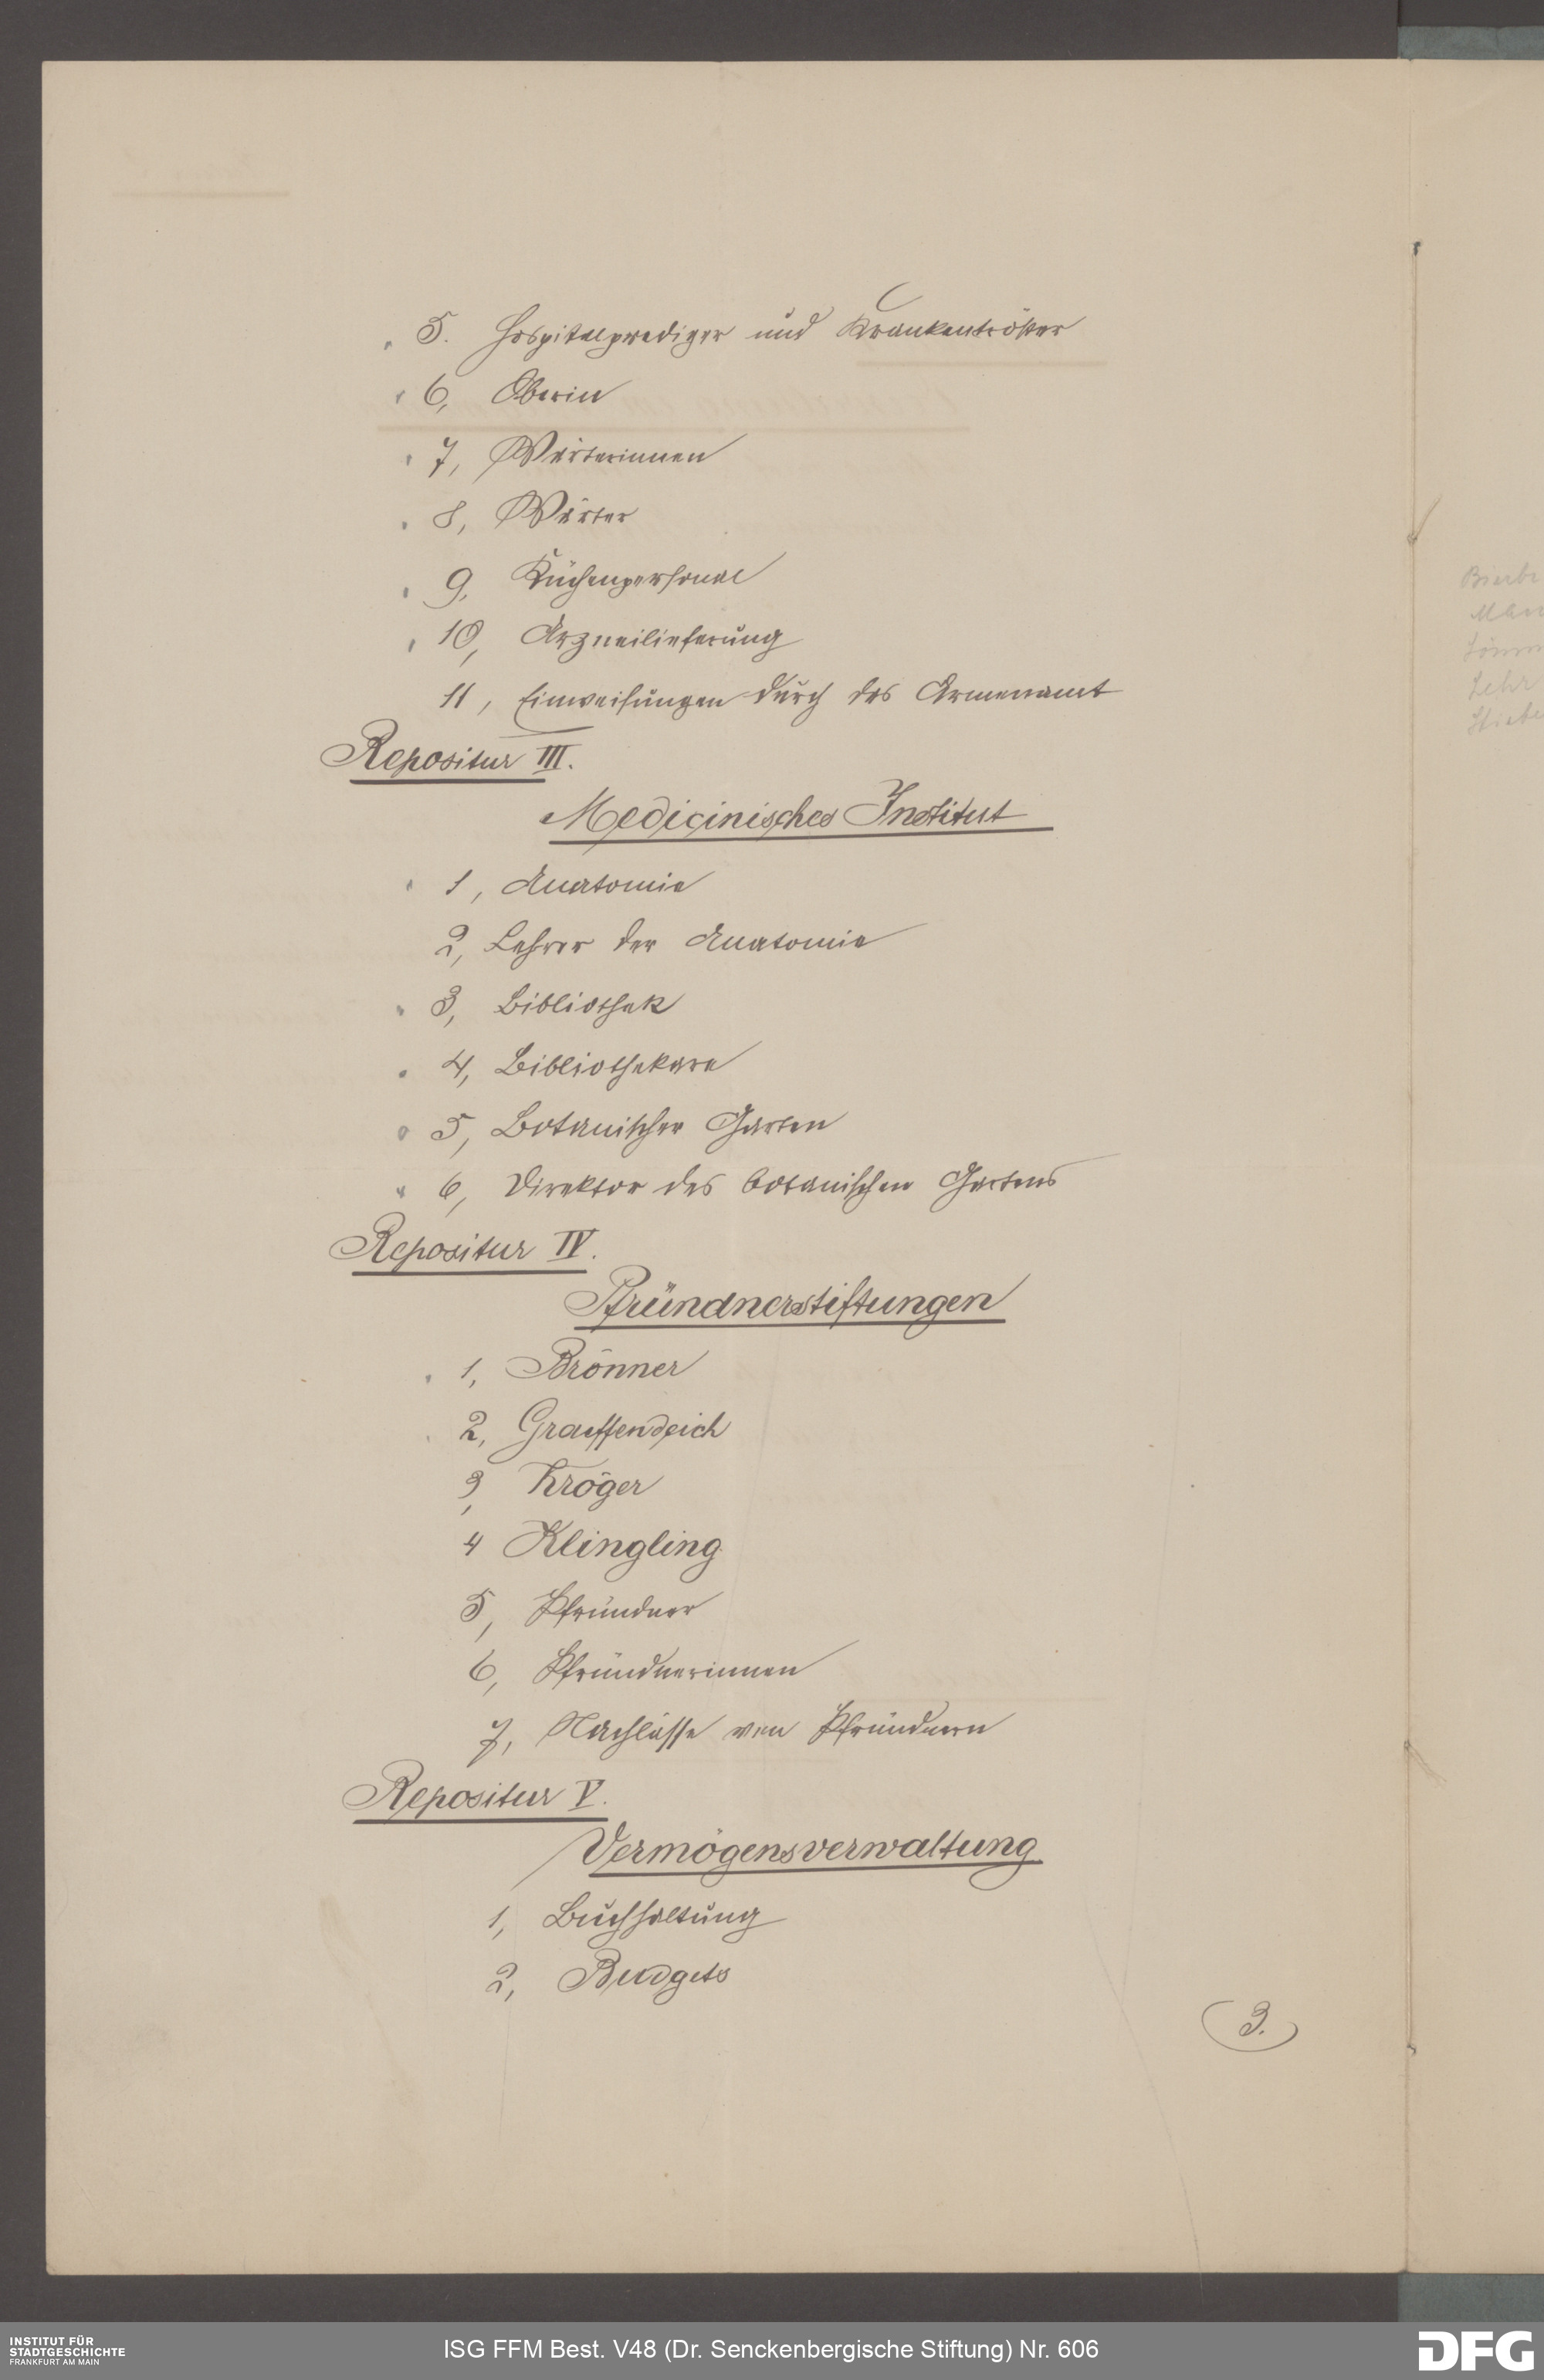 5. Hospitalprediger und Krankentröster
6, Oberin
7, Wärterinnen
8, Wärter
9, Küchenpersonal
10, Arzneilieferung
11, Einweisungen durch das Armenamt
Repositur III.
Medicinisches Institut
1, Anatomie
2, Lehrer der Anatomie
3, Bibliothek
4, Bibliothekare
5, Botanischer Garten
6, Direktor des botanischen Gartens
Repositur IV.
Pfründnerstiftungen
1, Brönner
2, Graeffendeich
3, Kröger
4 Klingling
5, Pfründner
6, Pfründnerinnen
7, Nachlässe von Pfründnern
Repositur V.
Vermögensverwaltung
1, Buchhaltung
2, Budgets
3.
INSTITUT FÜR
STADTGESCHICHTE
FRANKFURT AM MAIN
ISG FFM Best. V48 (Dr. Senckenbergische Stiftung) Nr. 606
DFG